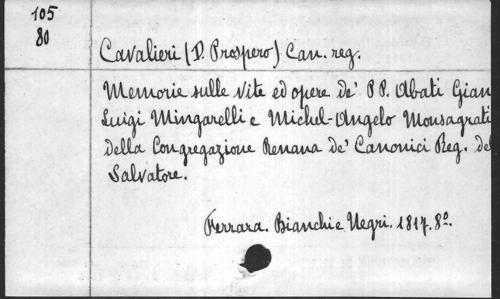 105
80
Cavalieri (D. Prospero) Can. reg.
Memorie sulle vite ed opere de' P P. Abati Gian
Luigi Mingarelli e Michel-Angelo Monsagrati
della Congregazione Renana de' Canonici Reg. del
Salvatore.
Ferrara. Bianchi e Negri. 1817. 8º.